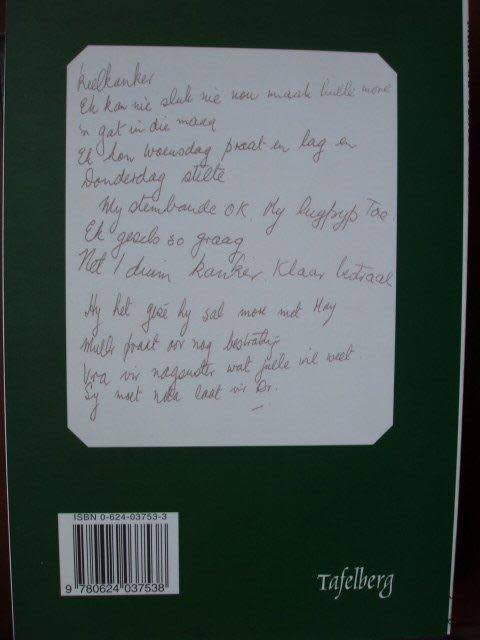 Keelkanker
Ek kan nie sluk nie nou maak hulle more
'n gat in die maag
Ek kon Woensdag praat en lag en
Donderdag stilte
My stembande OK. My lugpyp Toe.
Ek gesels so graag
Net 1 duim kanker. Klaar bestraal
Hy het gesê hy sal more met May
Muller praat oor nog bestraling
Vra vir nagsuster wat julle wil weet
Sy moet nota laat vir Dr.
ISBN 0-624-03753-3
9 780624 037538
Tafelberg